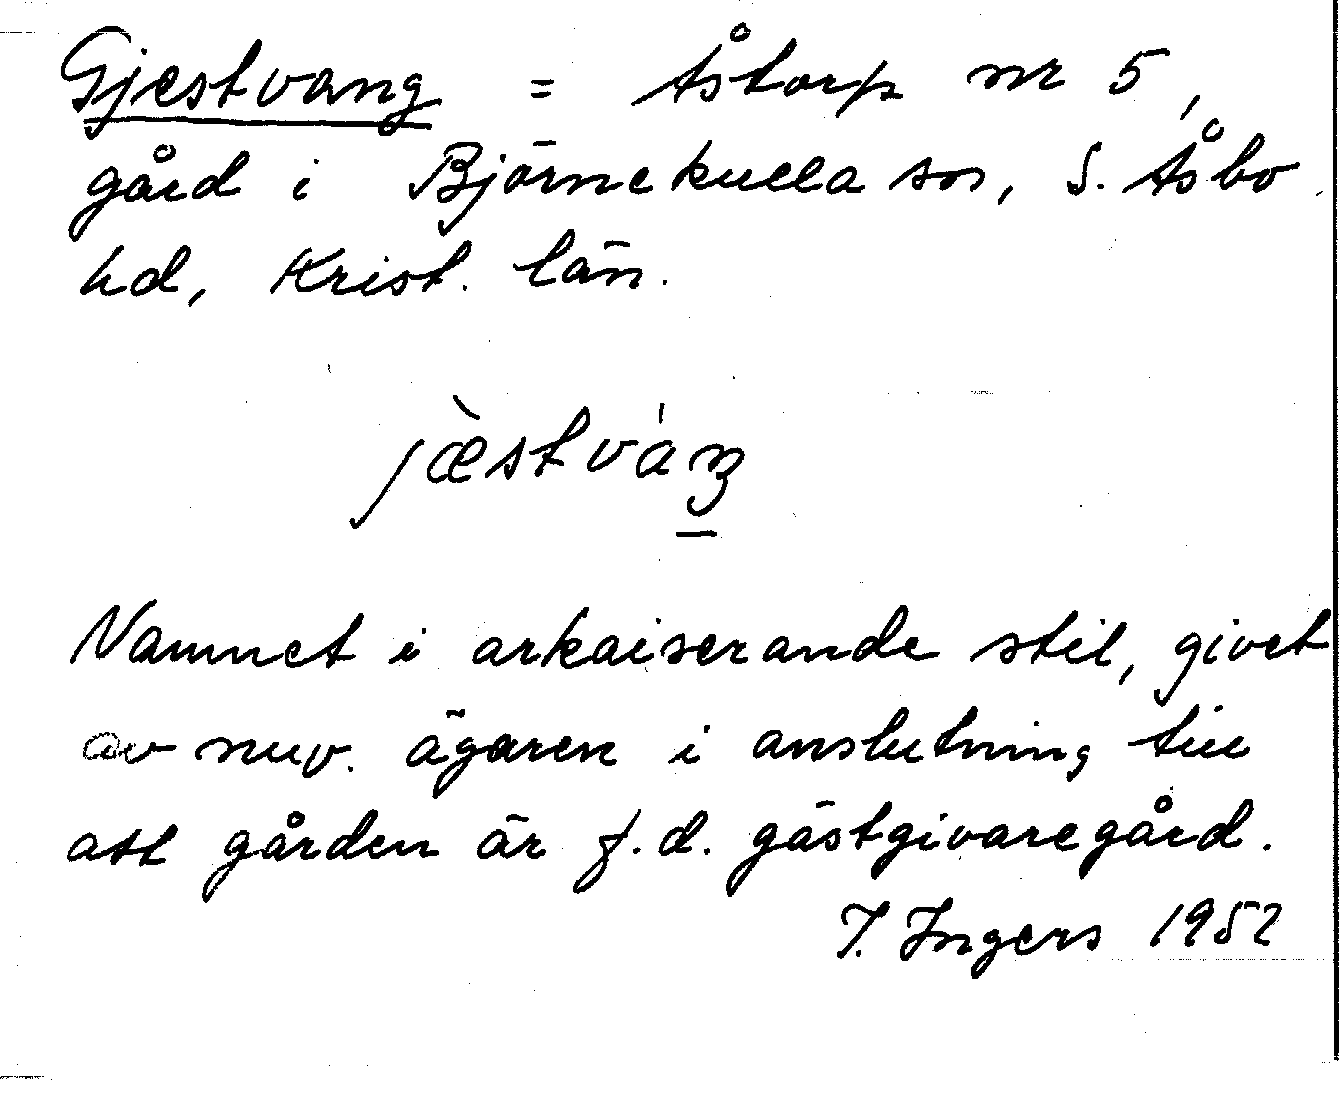 Gjestvang = Åstorp nr 5,
gård i Björnekulla sn, S. Åsbo
hd, Krist. län.
jæ̀stváŋ
Namnet i arkaiserande stil, givet
av nuv. ägaren i anslutning till
att gården är f.d. gästgivaregård.
I. Ingers 1952